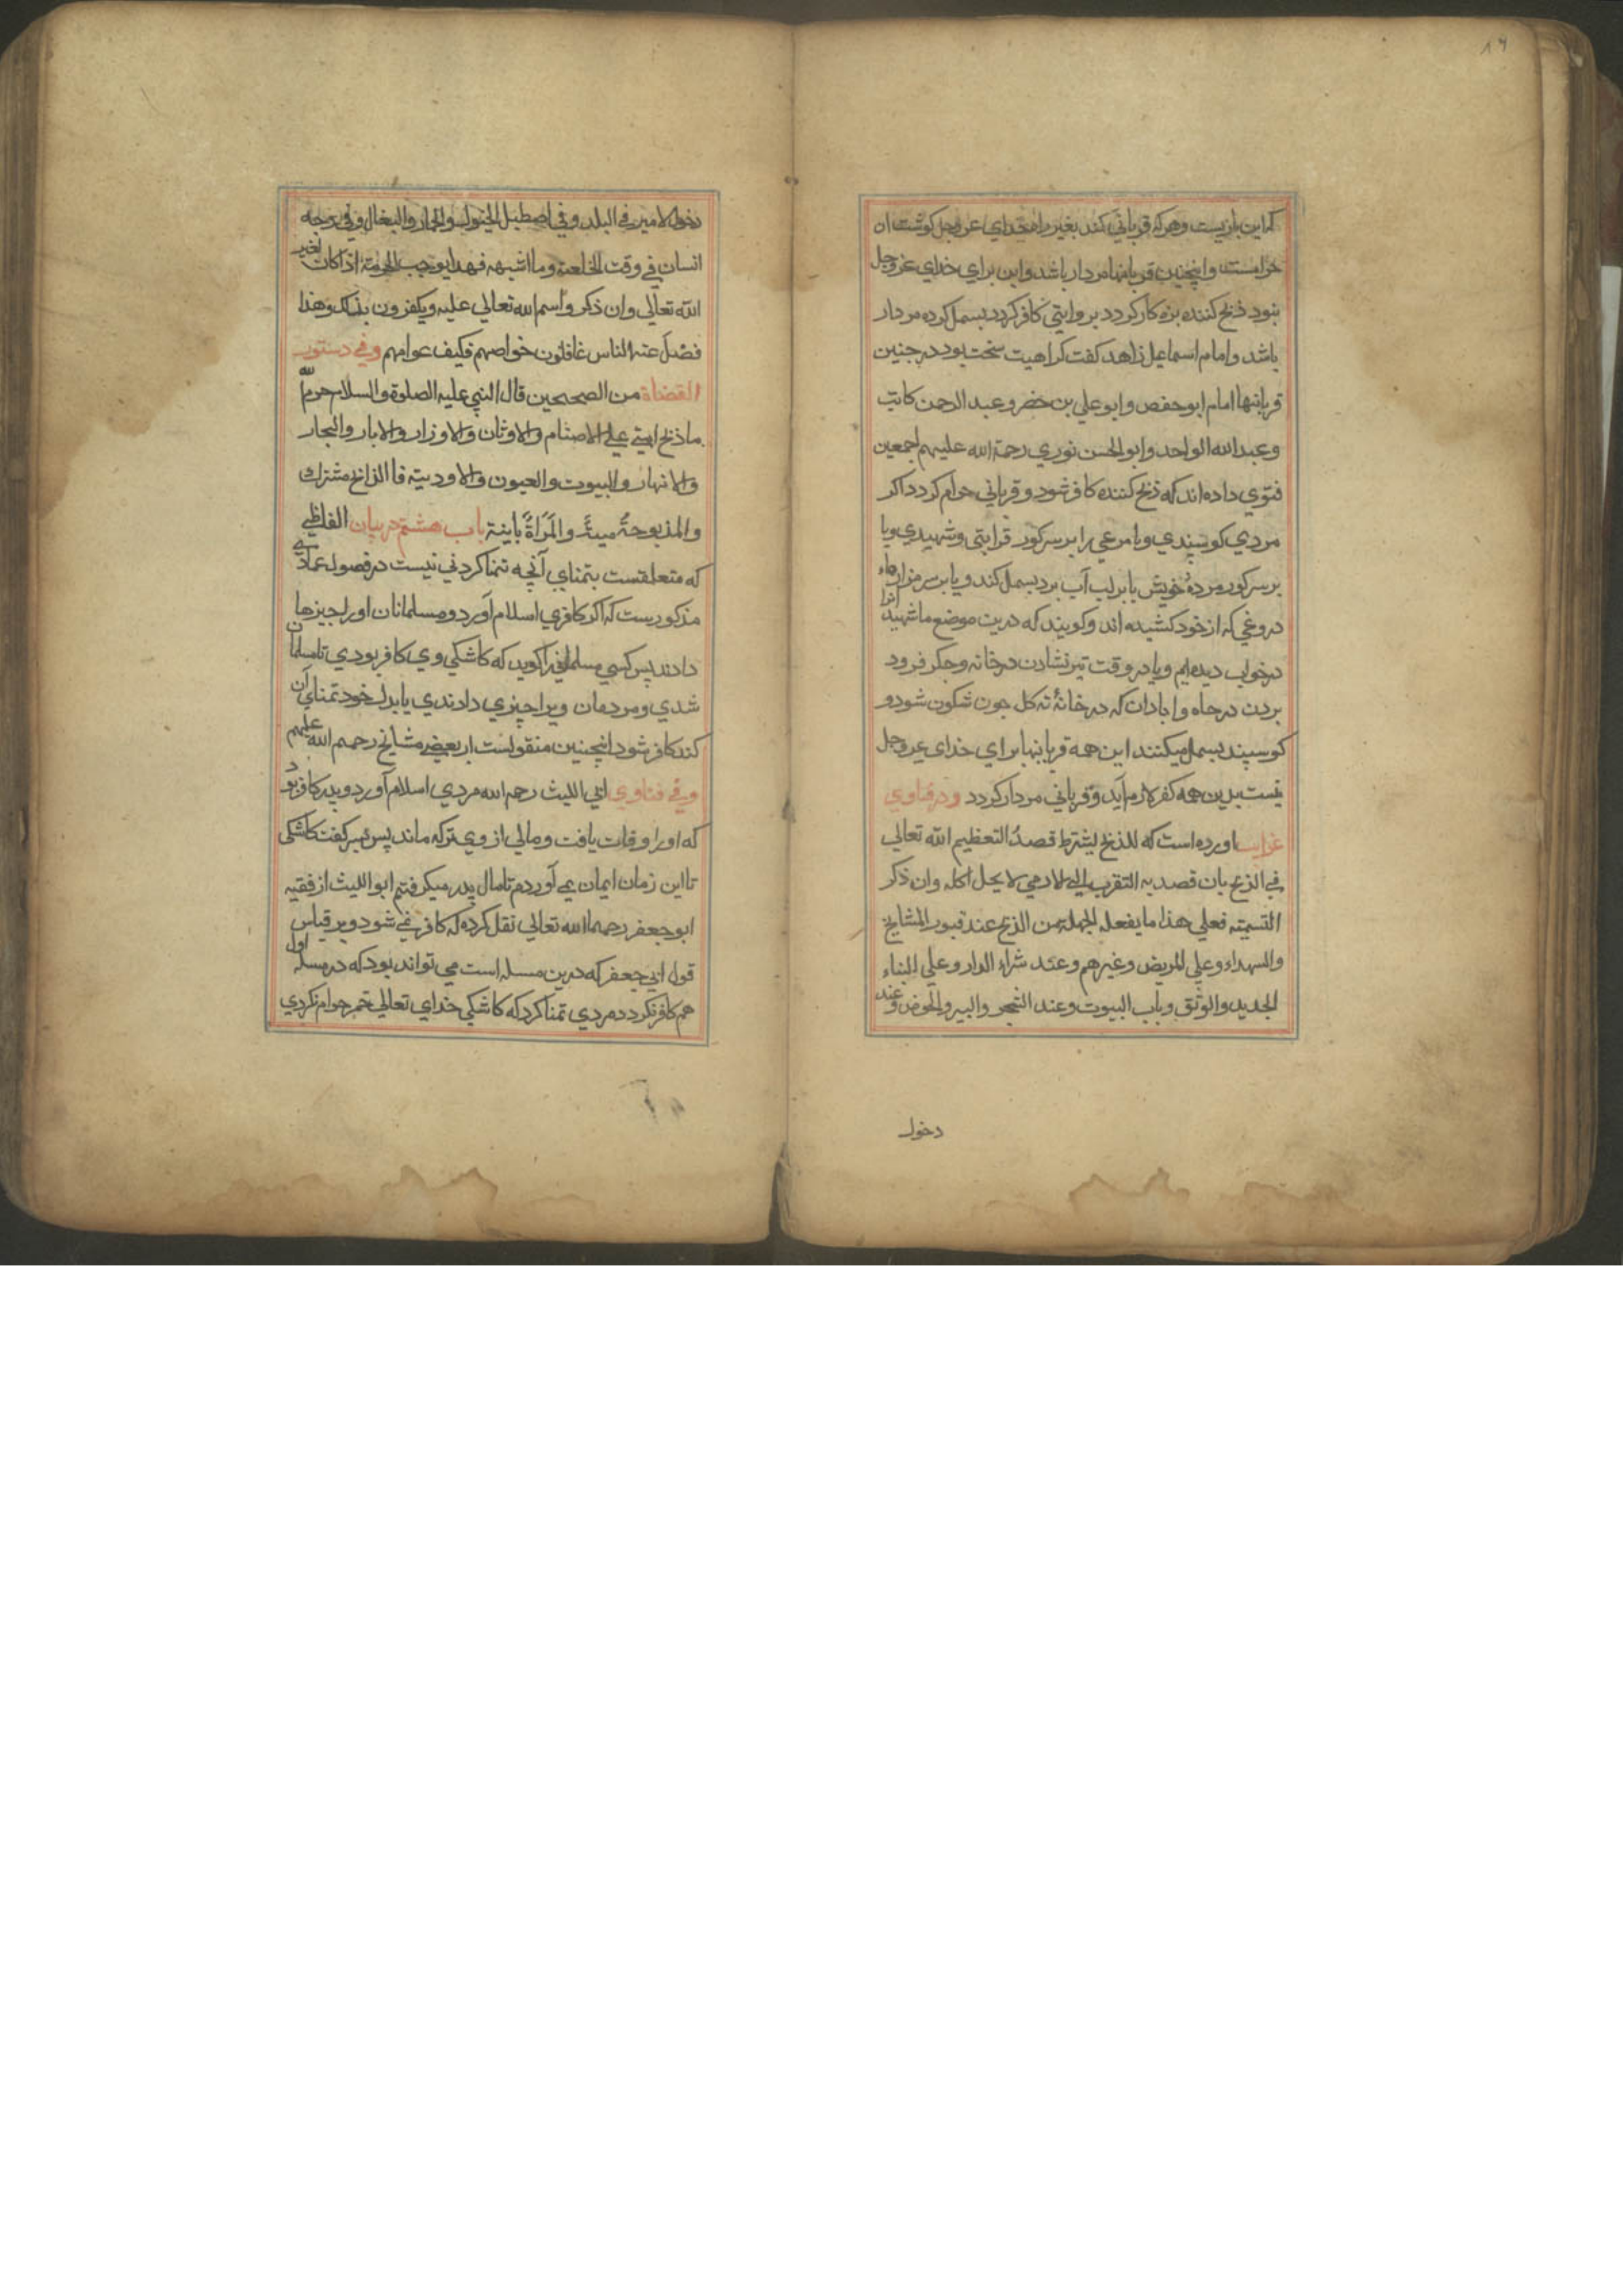 ۱۶
که این بازیست و هرکه قربانی کند بغیر راه خدای عز و جل کوشت ان
حرامست و اینچنین قربانیها مردار باشد و این برای خدای عز و جل
نبود ذبح کننده بزه کار کردد بروایتی کافر کردد بسمل کرده مردار
باشد و امام اسماعیل زاهد کفت کراهیت سخت بود در جنین
قربانیها امام ابو حفص و ابو علی بن خضر و عبد الرحمن کاتب
و عبد الله الواحد و ابو الحسن نوری رحمة الله علیهم اجمعین
فتوی داده اند که ذبح کننده کافر شود و قربانی حرام کردد اکر
مردی کوسپندی و یا مرغی را بر سر کور قرابتی و شهیدی و یا
بر سر کور مردهٔ خویش یا بر لب آب برد بسمل کند و یا بر سر مزارها
دروغی که از خود کشیده اند و کویند که درین موضع ما شهید انرا
در خواب دیده ایم و یا در وقت تیر نشادن در خانه و جکر فرود
بردن در جاه و ابادان که در خانهٔ ته کل جون شکون شود و
کوسپند بسمل میکنند این همه قربانیها برای خدای عز و جل
نیست بدین همه کفر لازم آید و قربانی مردار کردد و در فتاوی
غرایب اورده است که للذبح یشترط قصدُ التعظیم الله تعالی
فی الذبح بان قصد به التقرب الی الادمی لا یحل اکله وان ذکر
التسمیته فعلی هذا ما یفعله الجهلة من الذبح عند قبور المشایخ
والسهداء وعلی المریض وغیرهم وعند شراء الدار وعلی البناء
الجدید والوثق وباب البیوت وعند الشجر والبیر والحوض وعند
دخول
دخول الامیر فی البلد وفی اصطبل الخیول والحمار والبغال وفی وجه
انسان فی وقت الخلعة وما اشبهه فهذا یوجب الحرمة اذا کان لغیر
الله تعالی وان ذکر واسم الله تعالی علیه ویکفرون بذلک وهذا
فصل عنه الناس غافلون خواصهم فکیف عوامهم وفی دستور
القضاة من الصحیحین قال النبی علیه الصلوة والسلام حرم الله
ما ذبح امتی علی الاصنام والاوثان والاوزار والابار والبحار
والانهار والبیوت والعیون والاودیته فا الذابح مشترک
والمذبوحةُ میتةً والمَرَاةً باینة باب هشتم در بیان الفاظی
که متعلقست بتمنای آنچه تمنا کردنی نیست در فصول عمادی
مذکوریست که اکر کافری اسلام آورد و مسلمانان اورا چیزها
دادند پس کسی مسلمانی را کوید که کاشکی وی کافر بودی تا مسلمان
شدی و مردمان ویرا چیزی دادندی یا بدل خود تمنای آن
کند کافر شود اینچنین منقولست از بعضی مشایخ رحمهم الله علیهم
وفی فتاوی ابی اللیث رحمه الله مردی اسلام آورد و پدر کافر بود
که اورا وفات یافت و مالی از وی ترکه ماند پس پسر کفت کاشکی
تا این زمان ایمان نمی آوردم تا مال پدر میکرفتم ابو اللیث از فقیه
ابو جعفر رحمهما الله تعالی نقل کرده که کافر نمی شود و بر قیاس
قول ابی جعفر که درین مسله است می تواند بود که در مسله اول
هم کافر نکردد مردی تمنا کرد که کاشکی خدای تعالی خمر حرام نکردی